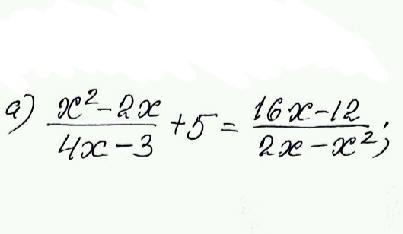 а) (x² - 2x)/(4x - 3) + 5 = (16x - 12)/(2x - x²);